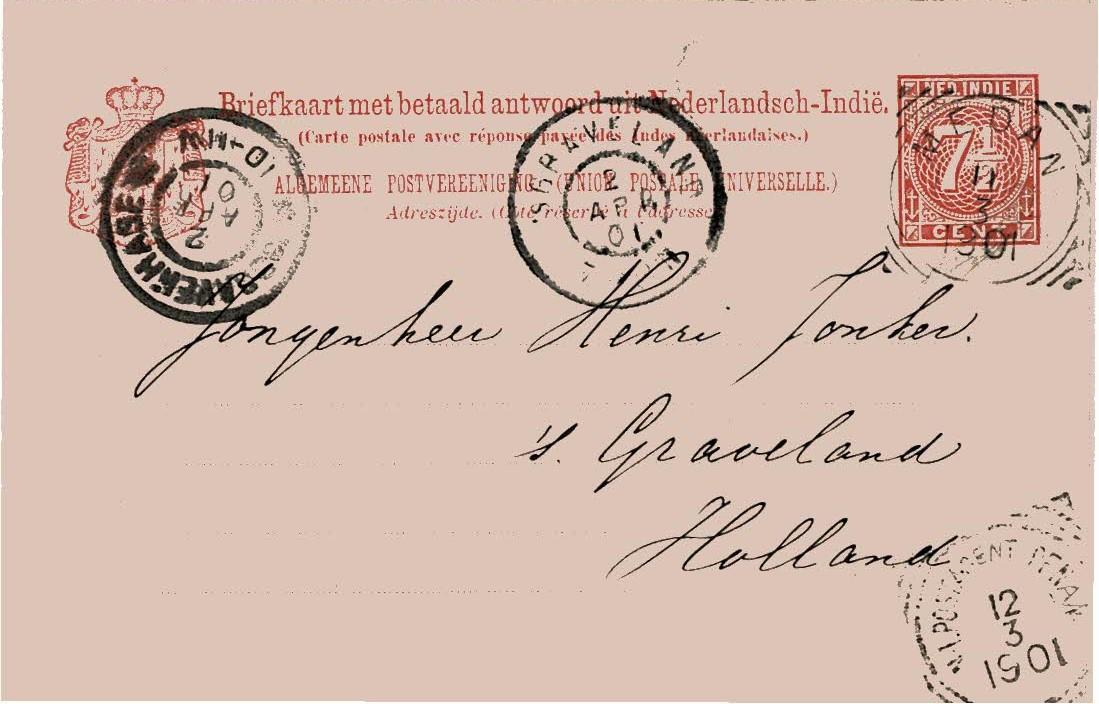 Briefkaart met betaald antwoord uit Nederlandsch-Indië.
(Carte postale avec réponse payée des Indes néerlandaises.)
ALGEMEENE POSTVEREENIGING (UNION POSTALE UNIVERSELLE.)
Adreszijde. (Côté réservé à l'adresse
NED. INDIE
7½
CENT
MEDAN
11
3
1901
'S GRAVELAND
2
APR
01
10-11V
2
APR
01
Jongenheer Henri Jonker.
's. Graveland
Holland
N.I. POSTAGENT PENAN
12
3
1901